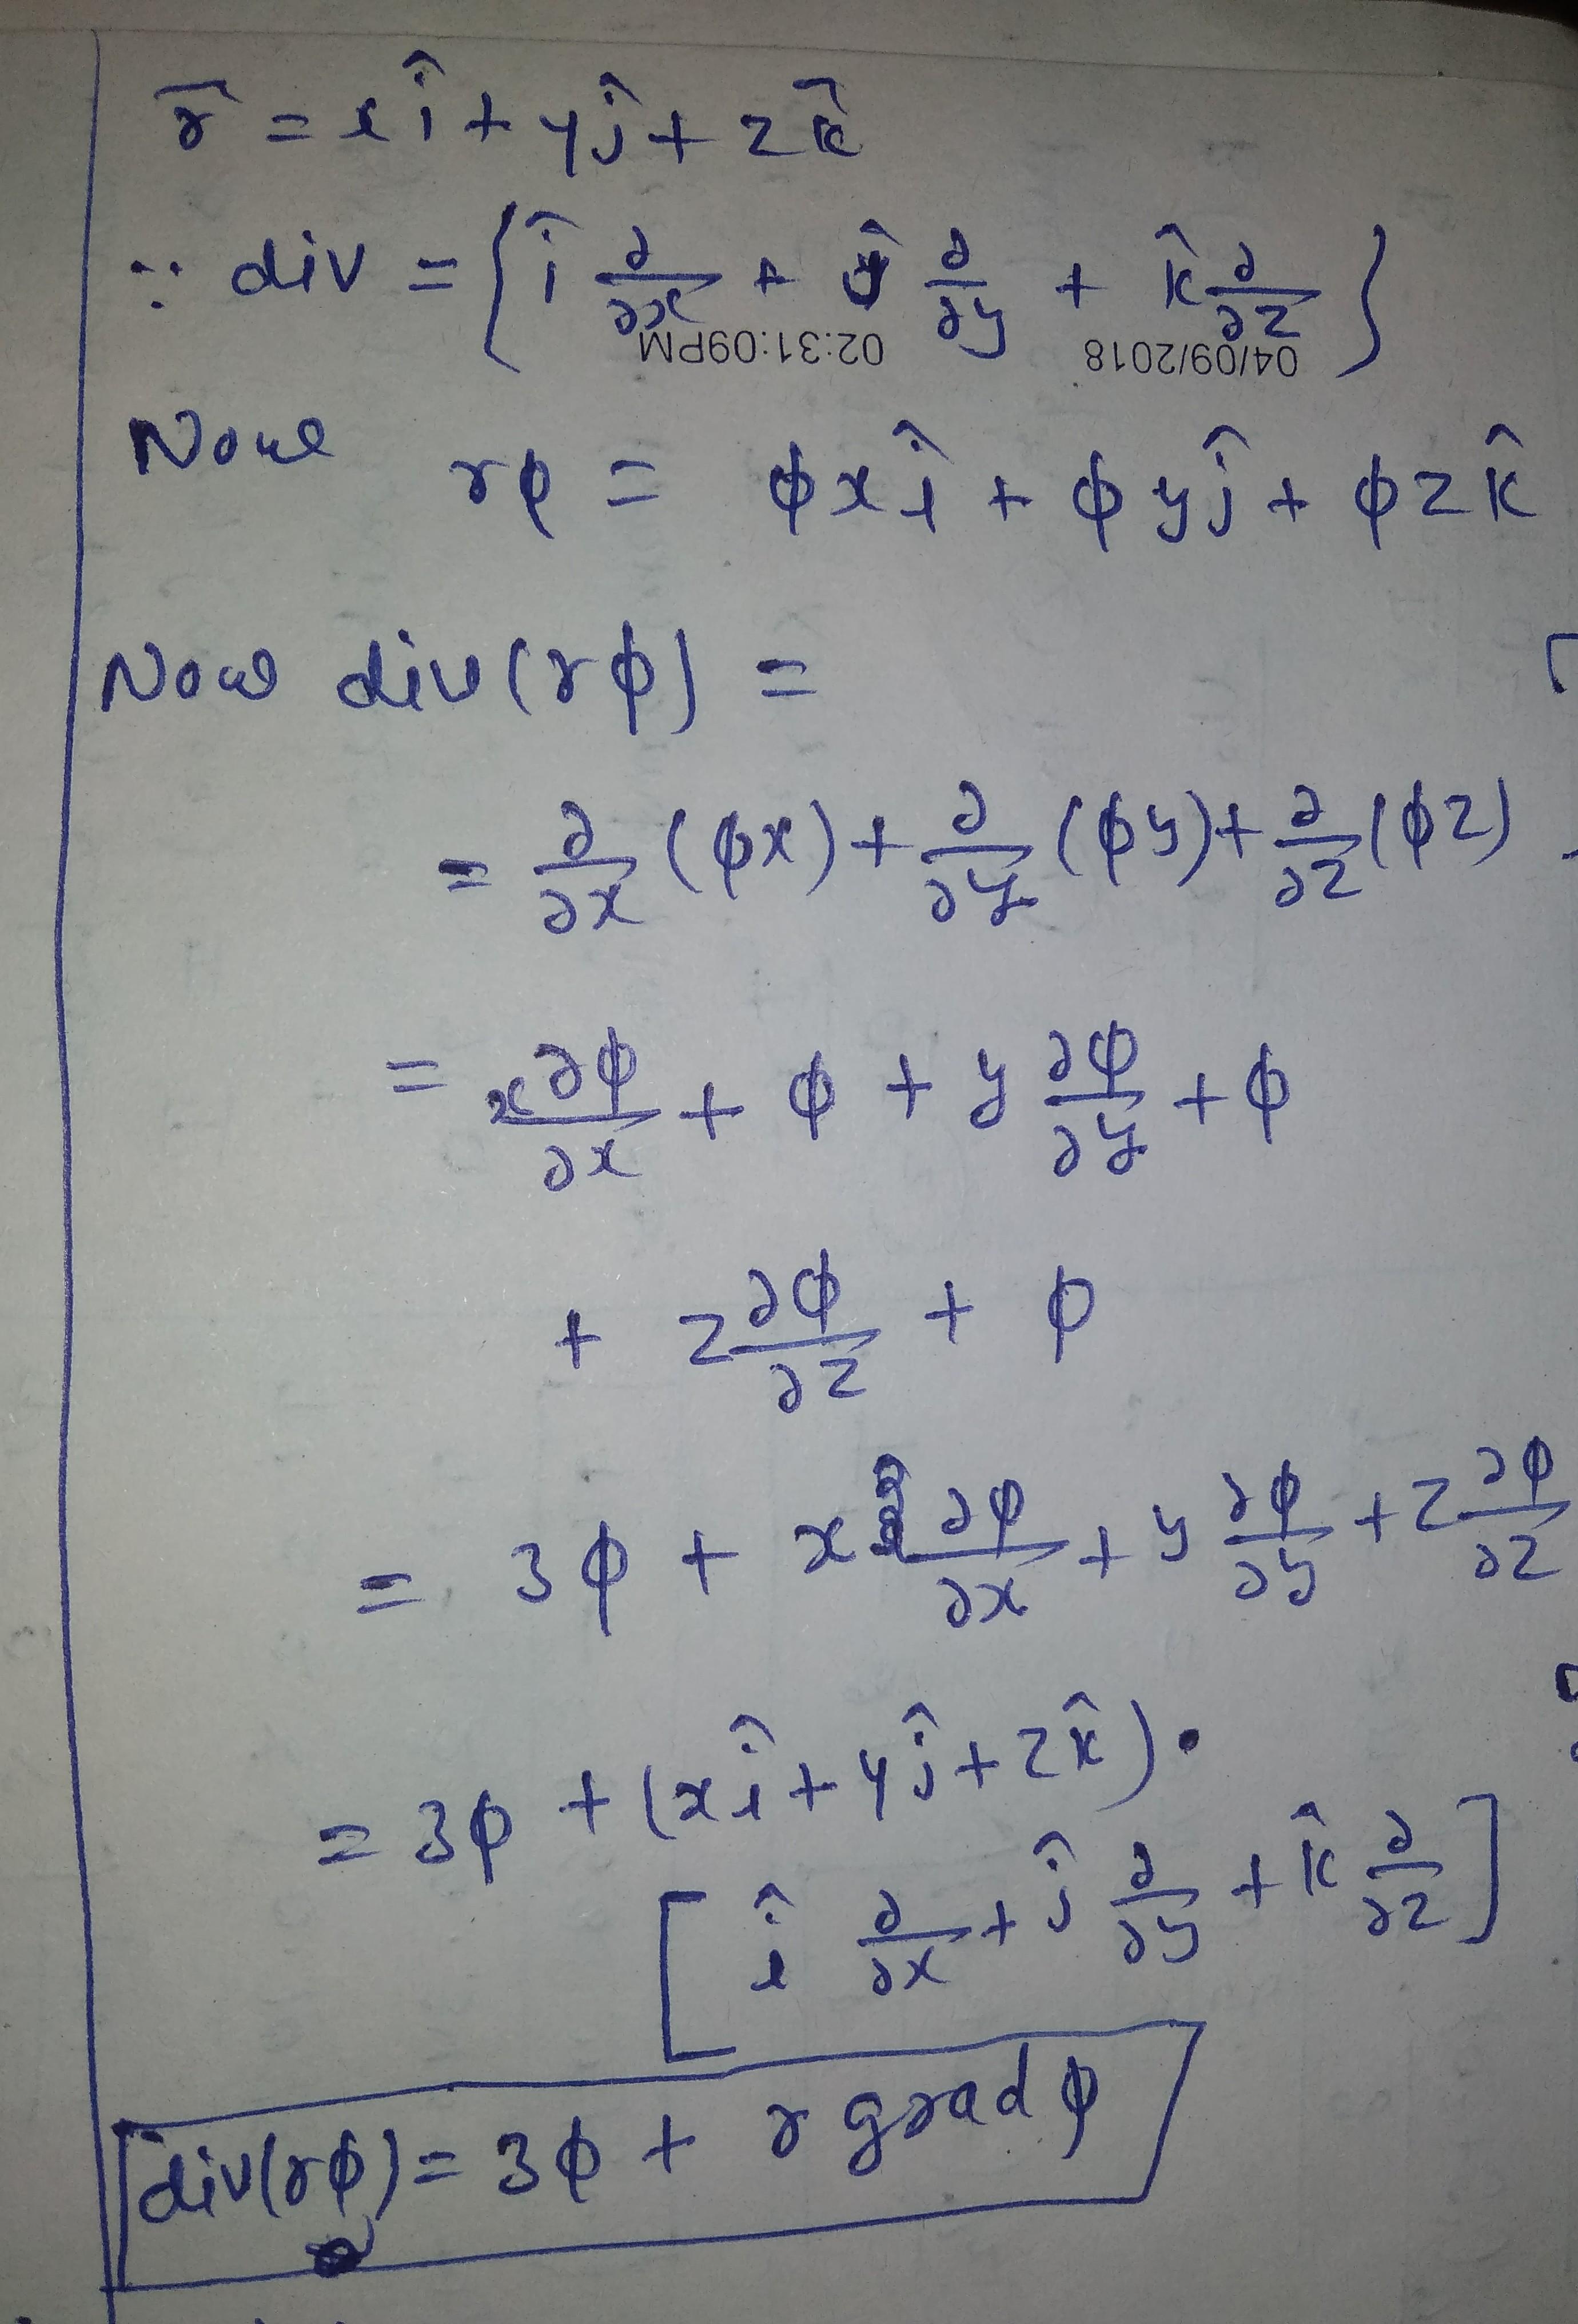 r̄ = x î + y ĵ + z k̂
∵ div = { î ∂/∂x + ĵ ∂/∂y + k̂ ∂/∂z }
04/09/2018 02:31:09PM
Now rφ = φx î + φy ĵ + φz k̂
Now div(rφ) =
= ∂/∂x (φx) + ∂/∂y (φy) + ∂/∂z (φz)
= x ∂φ/∂x + φ + y ∂φ/∂y + φ
+ z ∂φ/∂z + φ
= 3φ + x ∂φ/∂x + y ∂φ/∂y + z ∂φ/∂z
= 3φ + (x î + y ĵ + z k̂) •
[ î ∂/∂x + ĵ ∂/∂y + k̂ ∂/∂z ]
div(rφ) = 3φ + r grad φ